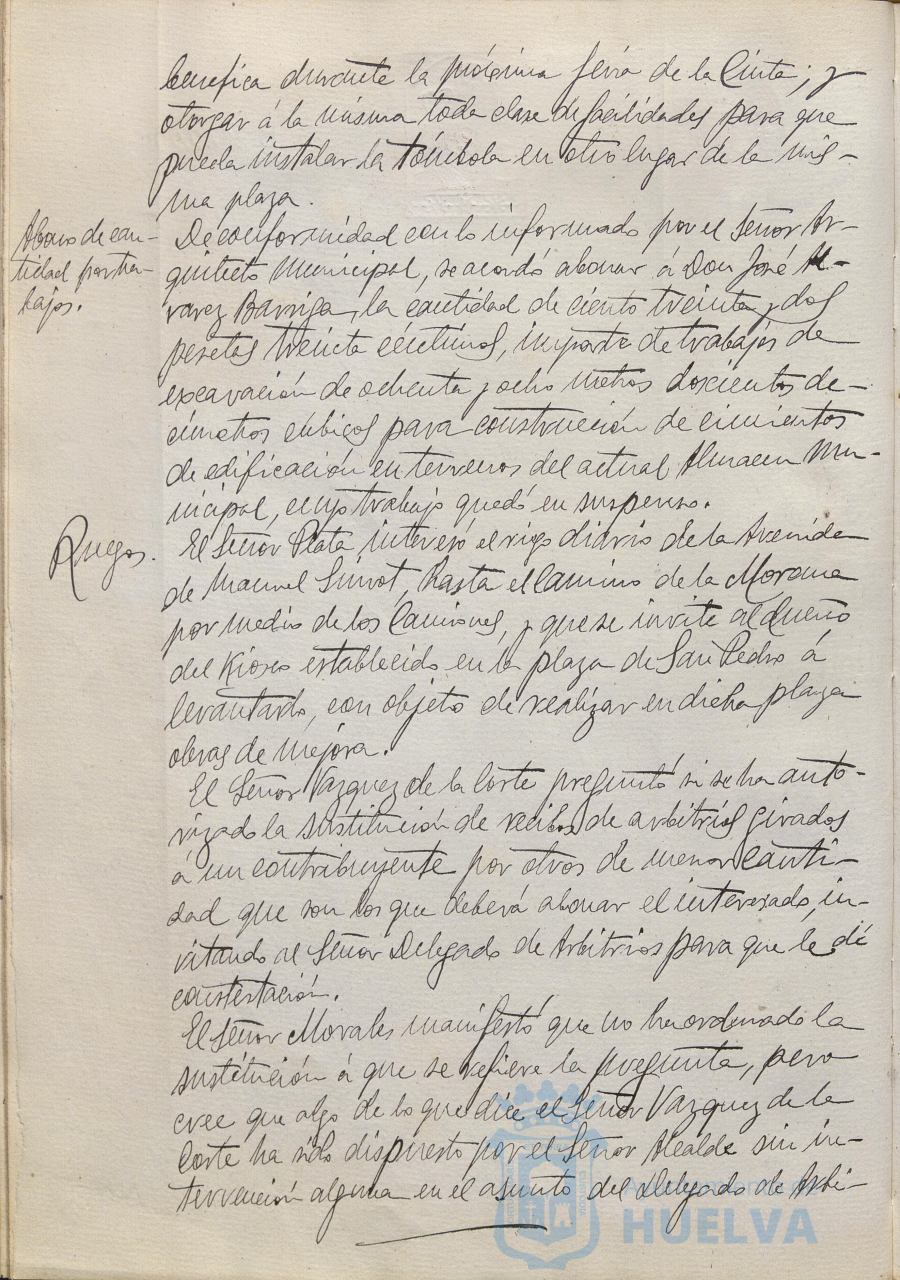 benefica durante la próxima feria de la Cinta; y
otorgar á la misma toda clase de facilidades para que
pueda instalar la tómbola en otro lugar de la mis-
ma plaza.
Abono de can-
tidad por tra-
bajos.
De conformidad con lo informado por el Señor Ar-
quitecto Municipal, se acordó abonar á Don José Al-
varez Barriga, la cantidad de ciento treinta y dos
pesetas treinta céntimos, importe de trabajos de
excavación de ochenta y ocho metros doscientos de-
címetros cúbicos para construcción de cimientos
de edificación en terrenos del actual Almacen Mu-
nicipal, cuyo trabajo quedó en suspenso.
Ruegos.
El Señor Plata interesó el riego diario de la Avenida
de Manuel Siurot, hasta el Camino de la Morana
por medio de los Camiones, y que se invite al dueño
del Kiosco establecido en la plaza de San Pedro á
levantarlo, con objeto de realizar en dicha plaza
obras de mejora.
El Señor Vazquez de la Corte preguntó si se ha auto-
rizado la sustitución de recibos de arbitrios girados
á un contribuyente por otros de menor canti-
dad que son los que deberá abonar el interesado, in-
vitando al Señor Delegado de Arbitrios para que le dé
contestación.
El Señor Morales manifestó que no ha ordenado la
sustitución á que se refiere la pregunta, pero
cree que algo de lo que dice el Señor Vazquez de la
Corte ha sido dispuesto por el Señor Alcalde sin in-
tervención alguna en el asunto del Delegado de Arbi-
Ayuntamiento de
HUELVA